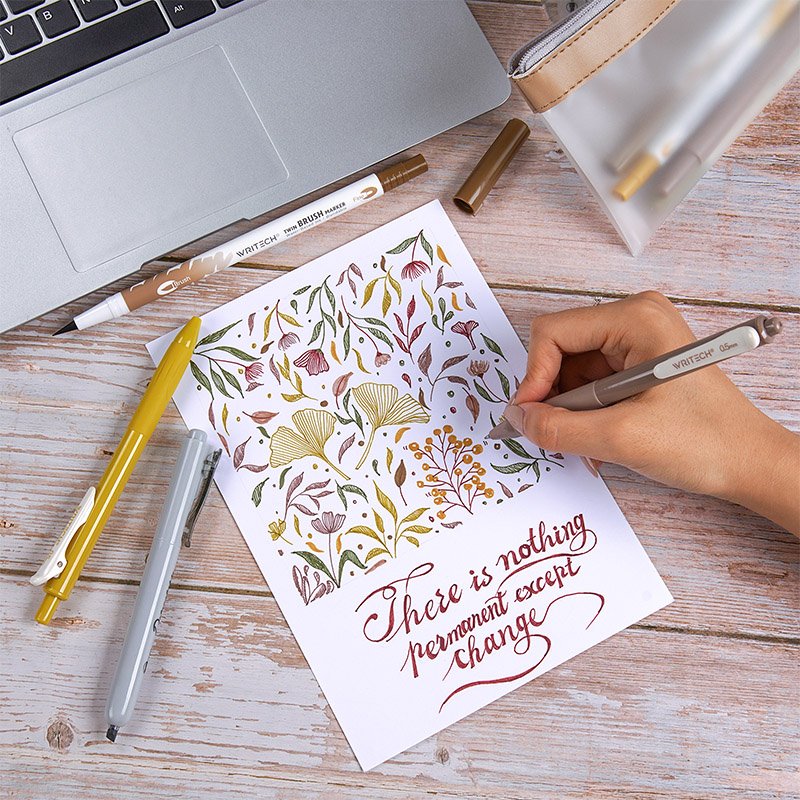 V
B
N
M
Brush
WRITECH®
TWIN BRUSH MARKER
Fine
WRITECH® 0.5mm
There is nothing
permanent except
change